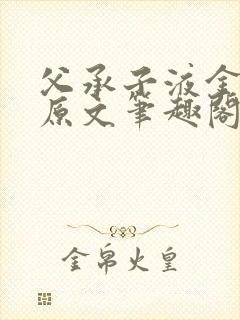 父承子液金
原文笔趣阁
金帛火皇